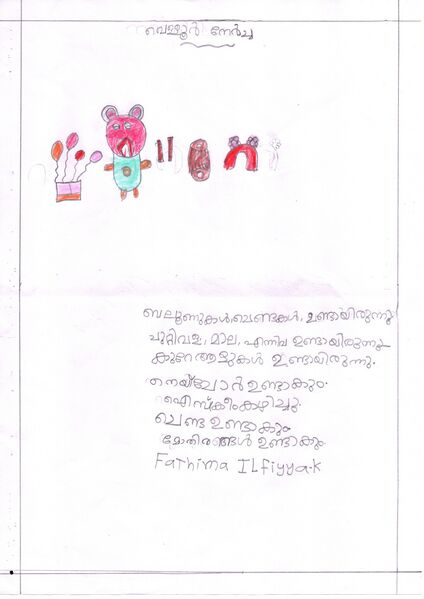 വെള്ളൂർ നേർച്ച
ബലൂണുകൾ, ചെണ്ടകൾ, ഉണ്ടായിരുന്നു
പുട്ടിവള, മാല, എന്നിവ ഉണ്ടായിരുന്നു
കുറേ ആളുകൾ ഉണ്ടായിരുന്നു.
നെയ്ചോർ ഉണ്ടാകും.
ഐസ്ക്രീം കഴിച്ചു.
ചെണ്ട ഉണ്ടാകും
മോതിരങ്ങൾ ഉണ്ടാകും
Fathima Ilfiyya.k